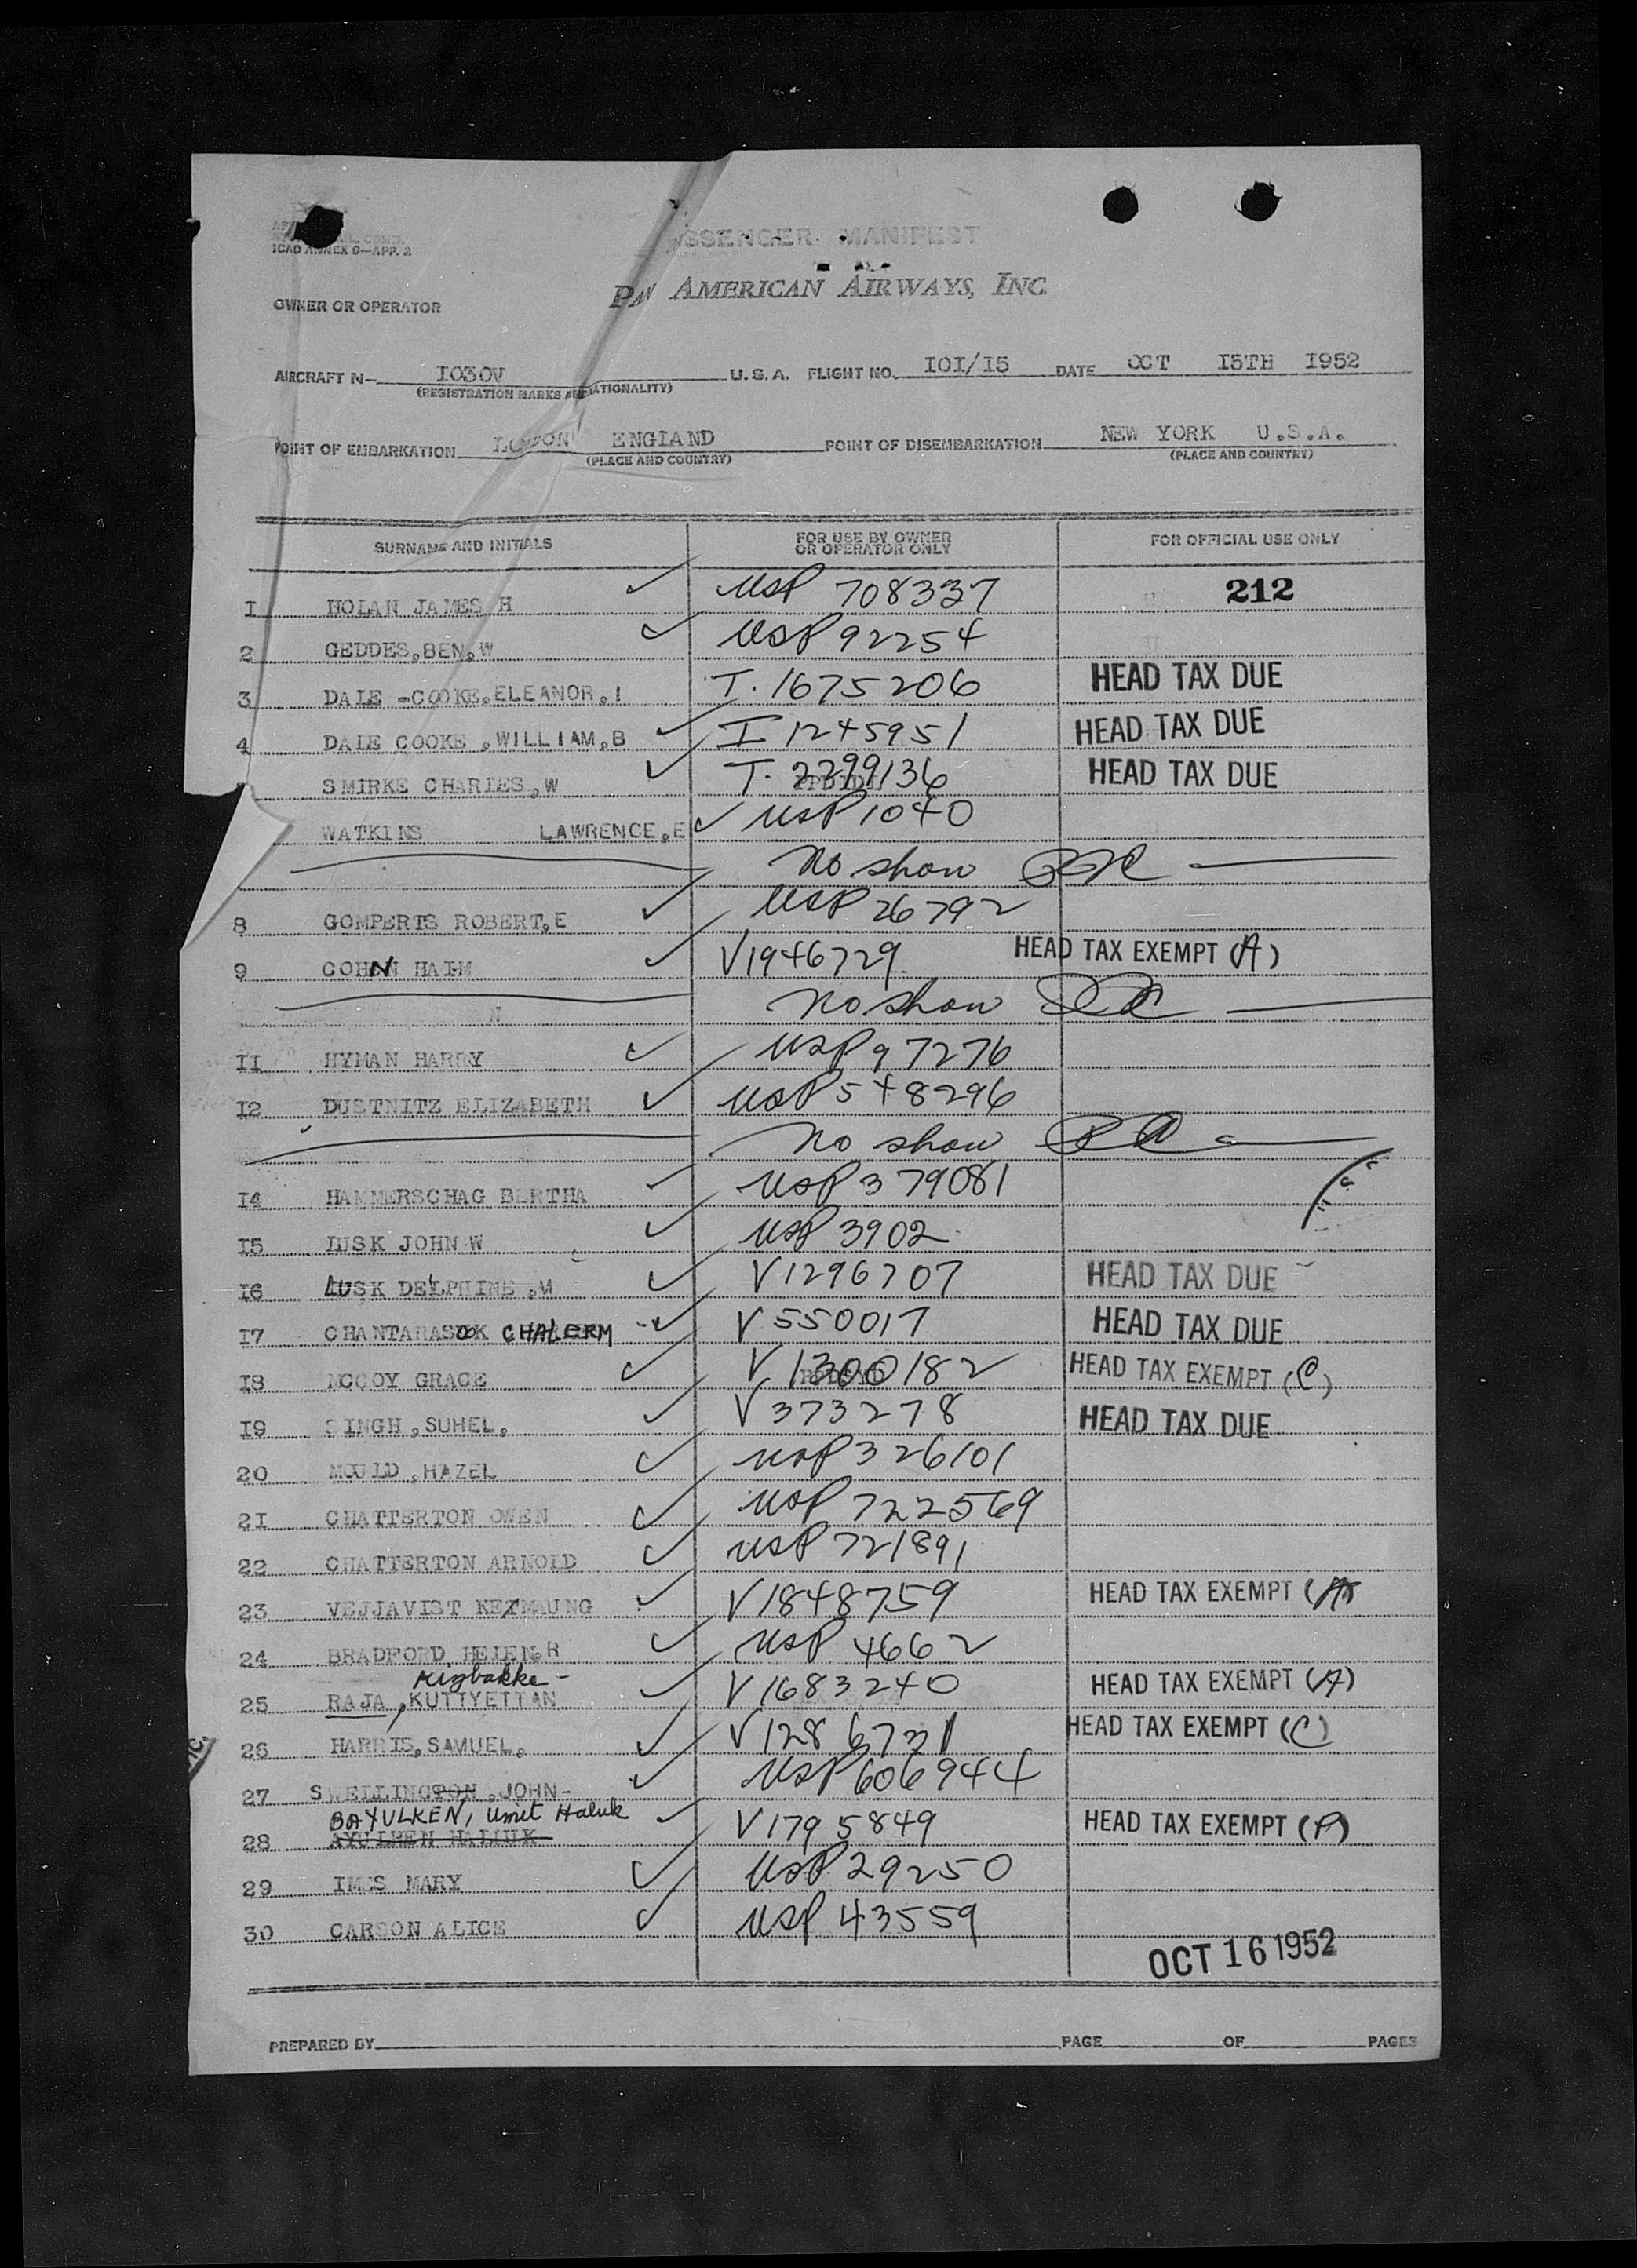 ICAO ANNEX 9—APP. 2
SSENGER MANIFEST
OWNER OR OPERATOR PAN AMERICAN AIRWAYS, INC.
AIRCRAFT N— I030V U.S.A. FLIGHT NO. I0I/I5 DATE OCT I5TH I952
(REGISTRATION MARKS AND NATIONALITY)
POINT OF EMBARKATION LONDON ENGLAND POINT OF DISEMBARKATION NEW YORK U.S.A.
(PLACE AND COUNTRY) (PLACE AND COUNTRY)
SURNAME AND INITIALS FOR USE BY OWNER OR OPERATOR ONLY FOR OFFICIAL USE ONLY
I NOLAN JAMES H USP 708337 212
2 GEDDES,BEN,W USP 92254
3 DALE -COOKE,ELEANOR,I T. 1675206 HEAD TAX DUE
4 DALE COOKE ,WILLIAM,B I 1245951 HEAD TAX DUE
SMIRKE CHARLES,W T. 2299136 HEAD TAX DUE
WATKINS LAWRENCE,E USP 1040
No show
8 GOMPERTS ROBERT,E USP 26792
9 COHN HAIM V1946729 HEAD TAX EXEMPT (A)
No show
II HYMAN HARRY USP 97276
I2 DUSTNITZ ELIZABETH USP 548296
No show
I4 HAMMERSCHAG BERTHA USP 379081
I5 LUSK JOHN W USP 3902
I6 LUSK DELPHINE ,M V1296707 HEAD TAX DUE
I7 CHANTARASOK CHALERM V 550017 HEAD TAX DUE
I8 MCCOY GRACE V 1300182 HEAD TAX EXEMPT (C)
I9 SINGH,SUHEL, V 373278 HEAD TAX DUE
20 MOULD,HAZEL USP 326101
2I CHATTERTON OWEN USP 722569
22 CHATTERTON ARNOLD USP 721891
23 VEJJAVIST KETMAUNG V1848759 HEAD TAX EXEMPT (A)
24 BRADFORD HELEN,R USP 4662
25 RAJA, KUTTYETTAN V 1683240 HEAD TAX EXEMPT (A)
26 HARRIS,SAMUEL, V1286731 HEAD TAX EXEMPT (C)
27 SWELLINGTON,JOHN- USP 606944
BAYULKEN, Umit Haluk
28 AYULHEN HALIUK V1795849 HEAD TAX EXEMPT (A)
29 IMES MARY USP 29250
30 CARSON ALICE USP 43559
OCT 16 1952
PREPARED BY PAGE OF PAGES